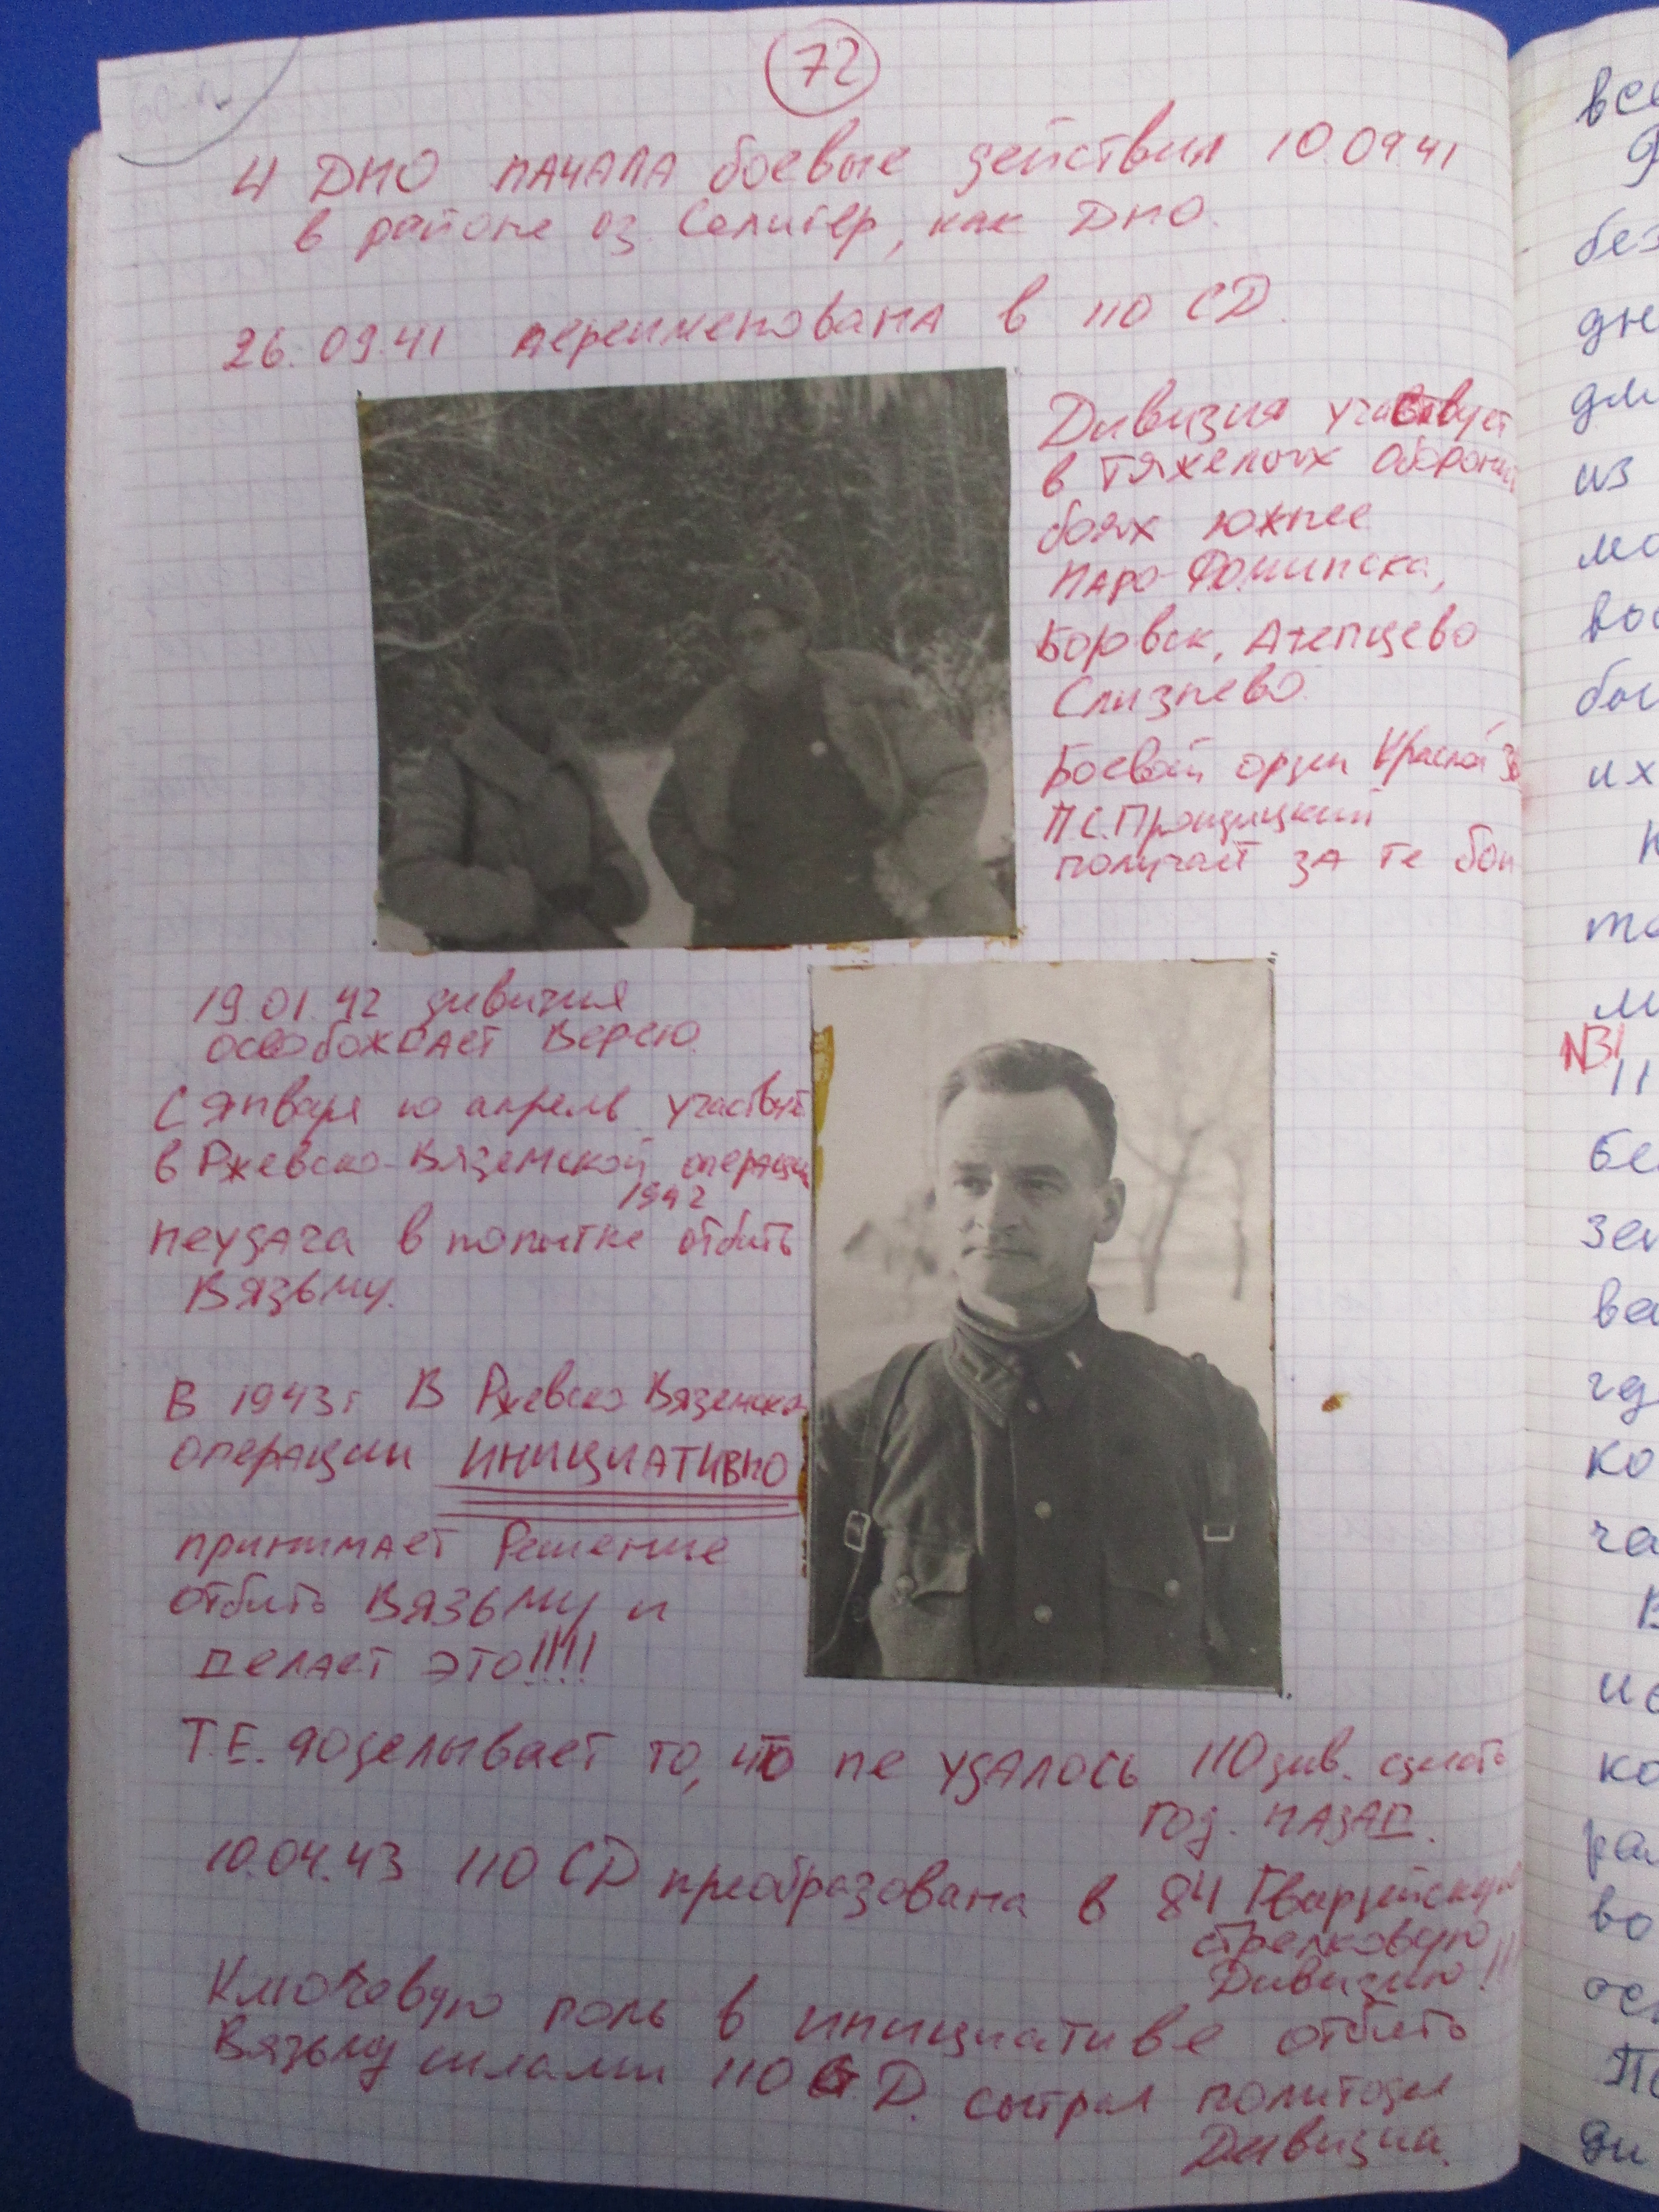 72
4 ДНО начала боевые действия 10.09.41
в районе оз. Селигер, как ДНО.
26.09.41 переименована в 110 СД.
Дивизия участвует
в тяжелых оборонит
боях южнее
Наро-Фоминска,
Боровск, Атепцево
Слизнево.
Боевой орден Красной Зв
П.С.
получает за те бои
19.01.42 дивизия
освобождает Верею.
С января по апрель участвует
в Ржевско-Вяземской операции
1942
неудача в попытке отбить
Вязьму.
В 1943 г В Ржевско Вяземской
операции ИНИЦИАТИВНО
принимает Решение
отбить Вязьму и
делает это!!!!
Т.Е. доделывает то, что не удалось 110 див. сделать
год. назад.
10.04.43 110 СД преобразована в 84 Гвардейскую
стрелковую
Дивизию!!!
Ключевую роль в инициативе отбить
Вязьму силами 110 С.Д. сыграл политотдел
Дивизии.
все
без
дн
дл
из
мо
вос
бы
их
то
м
N31
11
бе
зе
ва
гд
ко
ча
В
ис
ко
ра
во
ос
По
ди